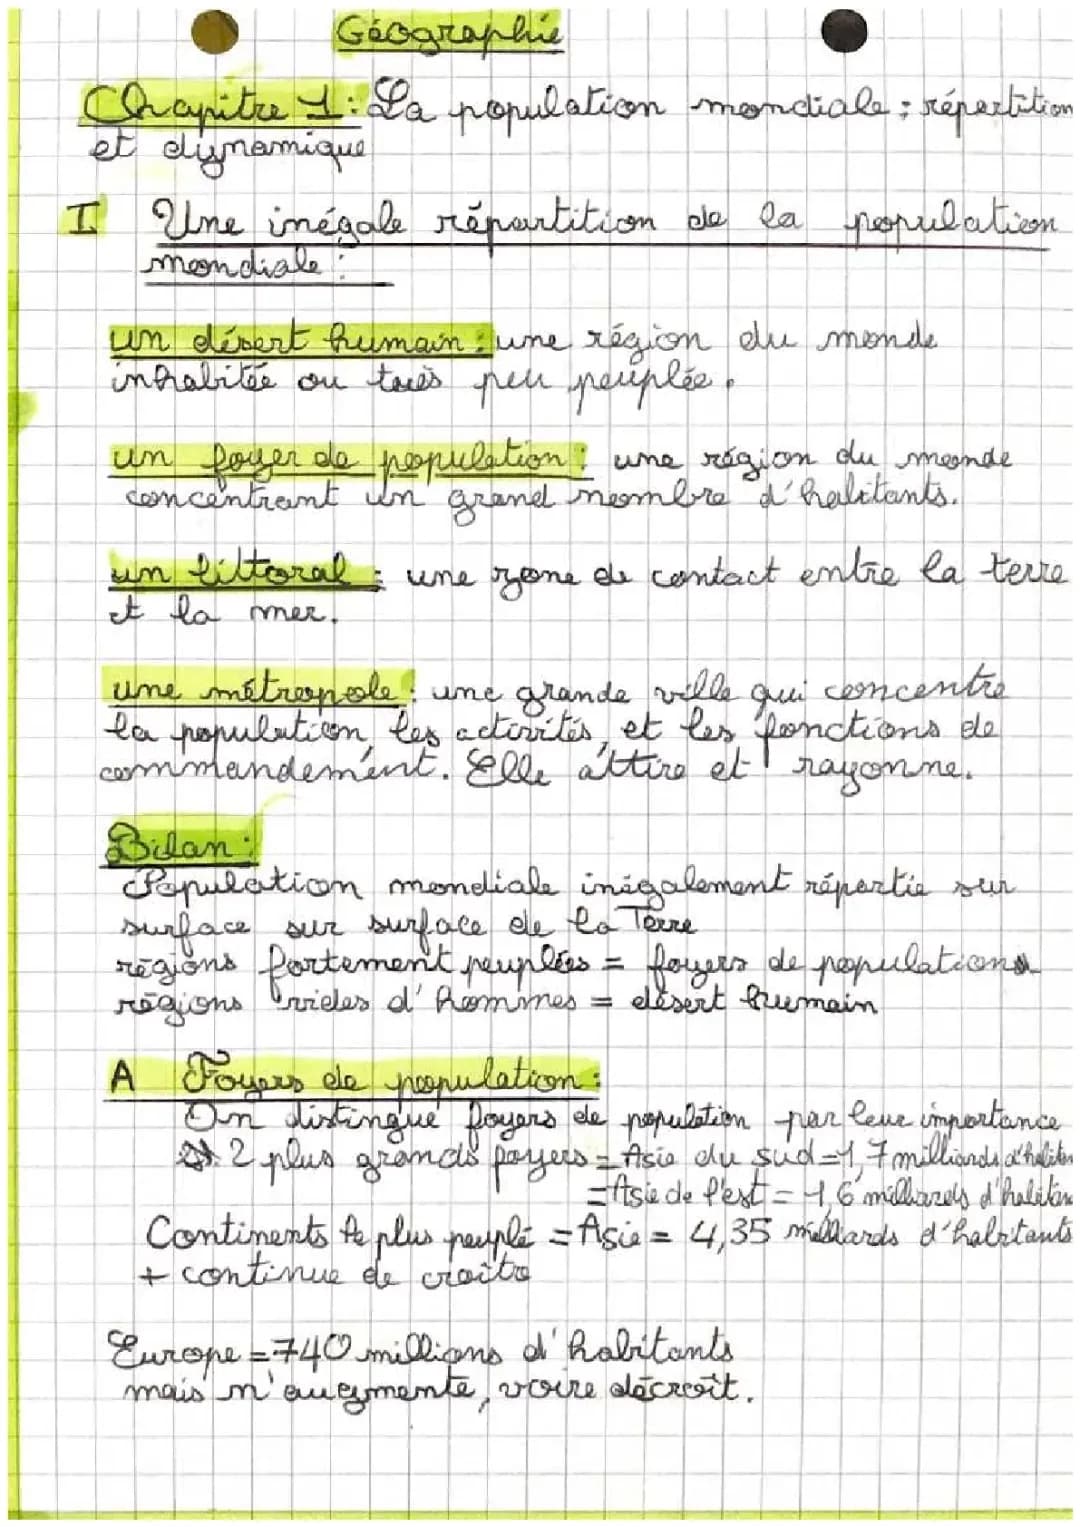 Géographie
Chapitre 1 : La population mondiale : répartition
et dynamique
I Une inégale répartition de la population
mondiale :
un désert humain : une région du monde
inhabitée ou très peu peuplée.
un foyer de population : une région du monde
concentrant un grand nombre d'habitants.
un littoral : une zone de contact entre la terre
et la mer.
une métropole : une grande ville qui concentre
la population, les activités, et les fonctions de
commandement. Elle attire et rayonne.
Bilan :
Population mondiale inégalement répartie sur
surface sur surface de la Terre
régions fortement peuplées = foyers de populations
régions vides d'hommes = désert humain
A Foyers de population :
On distingue foyers de population par leur importance
2 plus grands foyers = Asie du sud = 1,7 milliards d'habitan
= Asie de l'est = 1,6 milliards d'habitan
Continents le plus peuplé = Asie = 4,35 milliards d'habitants
+ continue de croître
Europe = 740 millions d'habitants
mais n'augmente, voire décroît.